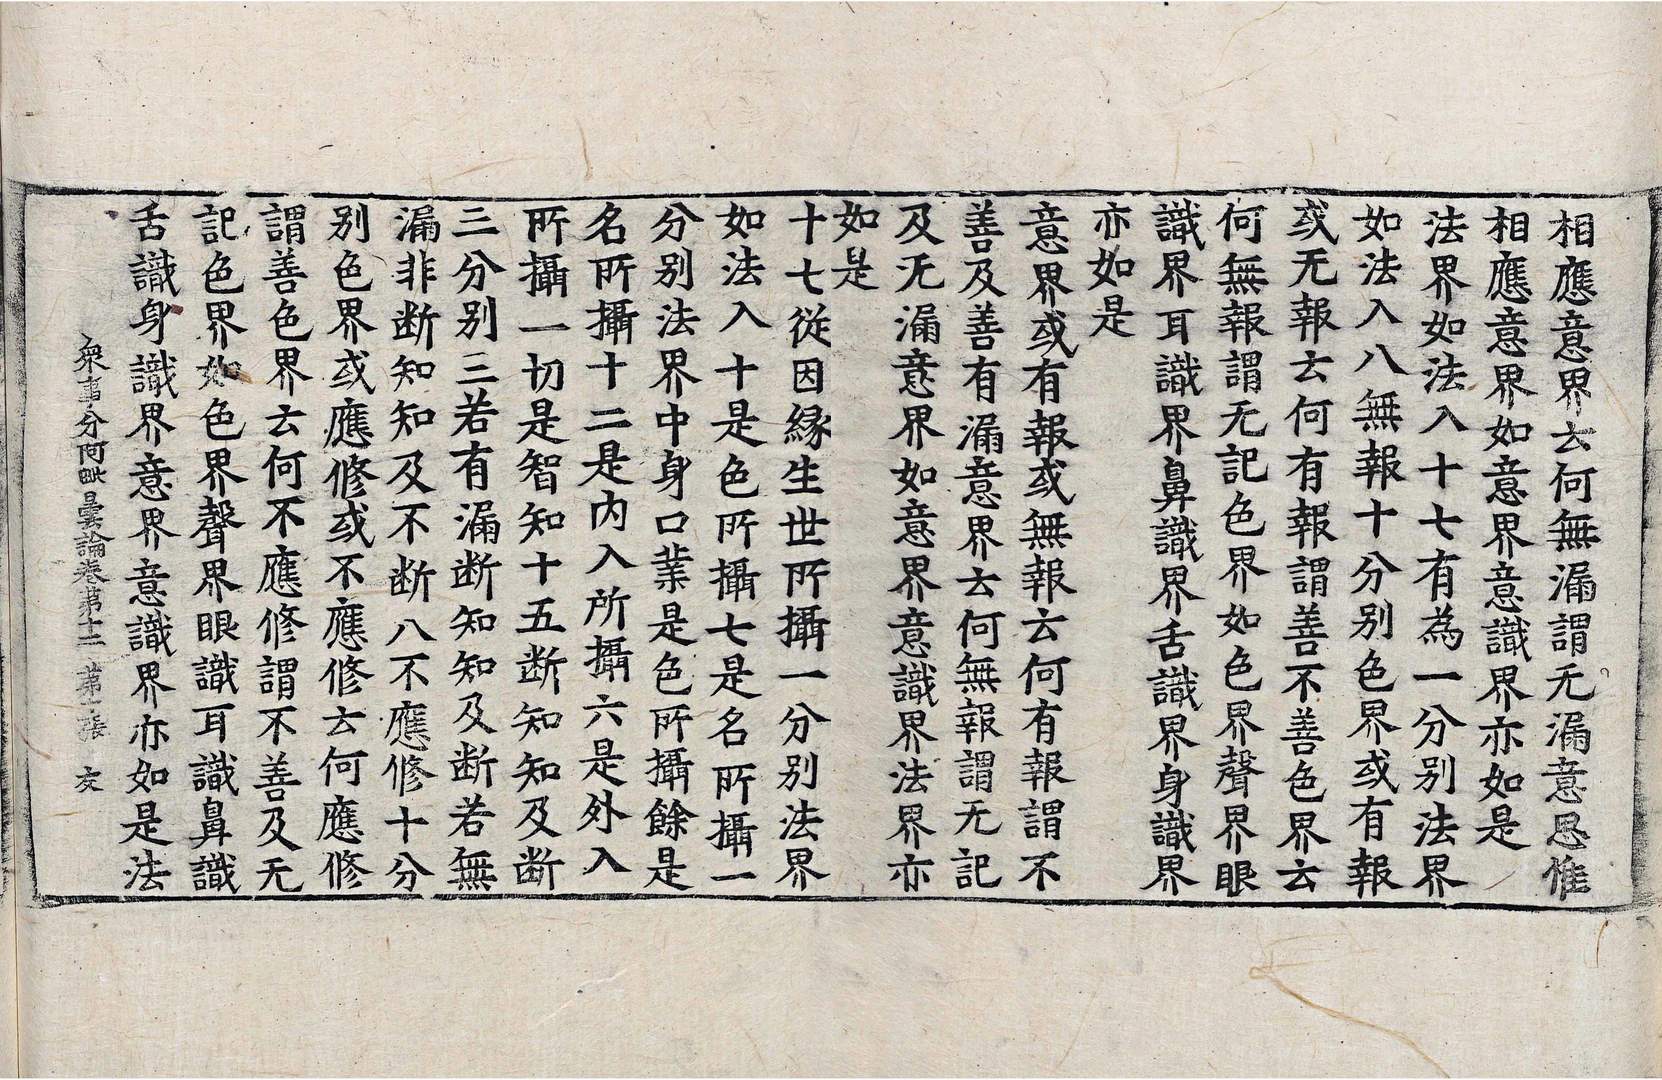 相應意界云何無漏謂无漏意思惟
相應意界如意界意識界亦如是
法界如法入十七有為一分別法界
如法入八無報十分別色界或有報
或无報云何有報謂善不善色界云
何無報謂无記色界如色界聲界眼
識界耳識界鼻識界舌識界身識界
亦如是
意界或有報或無報云何有報謂不
善及善有漏意界云何無報謂无記
及无漏意界如意界意識界法界亦
如是
十七從因緣生世所攝一分別法界
如法入十是色所攝七是名所攝一
分別法界中身口業是色所攝餘是
名所攝十二是內入所攝六是外入
所攝一切是智知十五断知知及断
三分別三若有漏断知知及断若無
漏非断知知及不断八不應修十分
別色界或應修或不應修云何應修
謂善色界云何不應修謂不善及无
記色界如色界聲界眼識耳識鼻識
舌識身識界意界意識界亦如是法
衆事分阿毗曇論卷第十二 第張 友